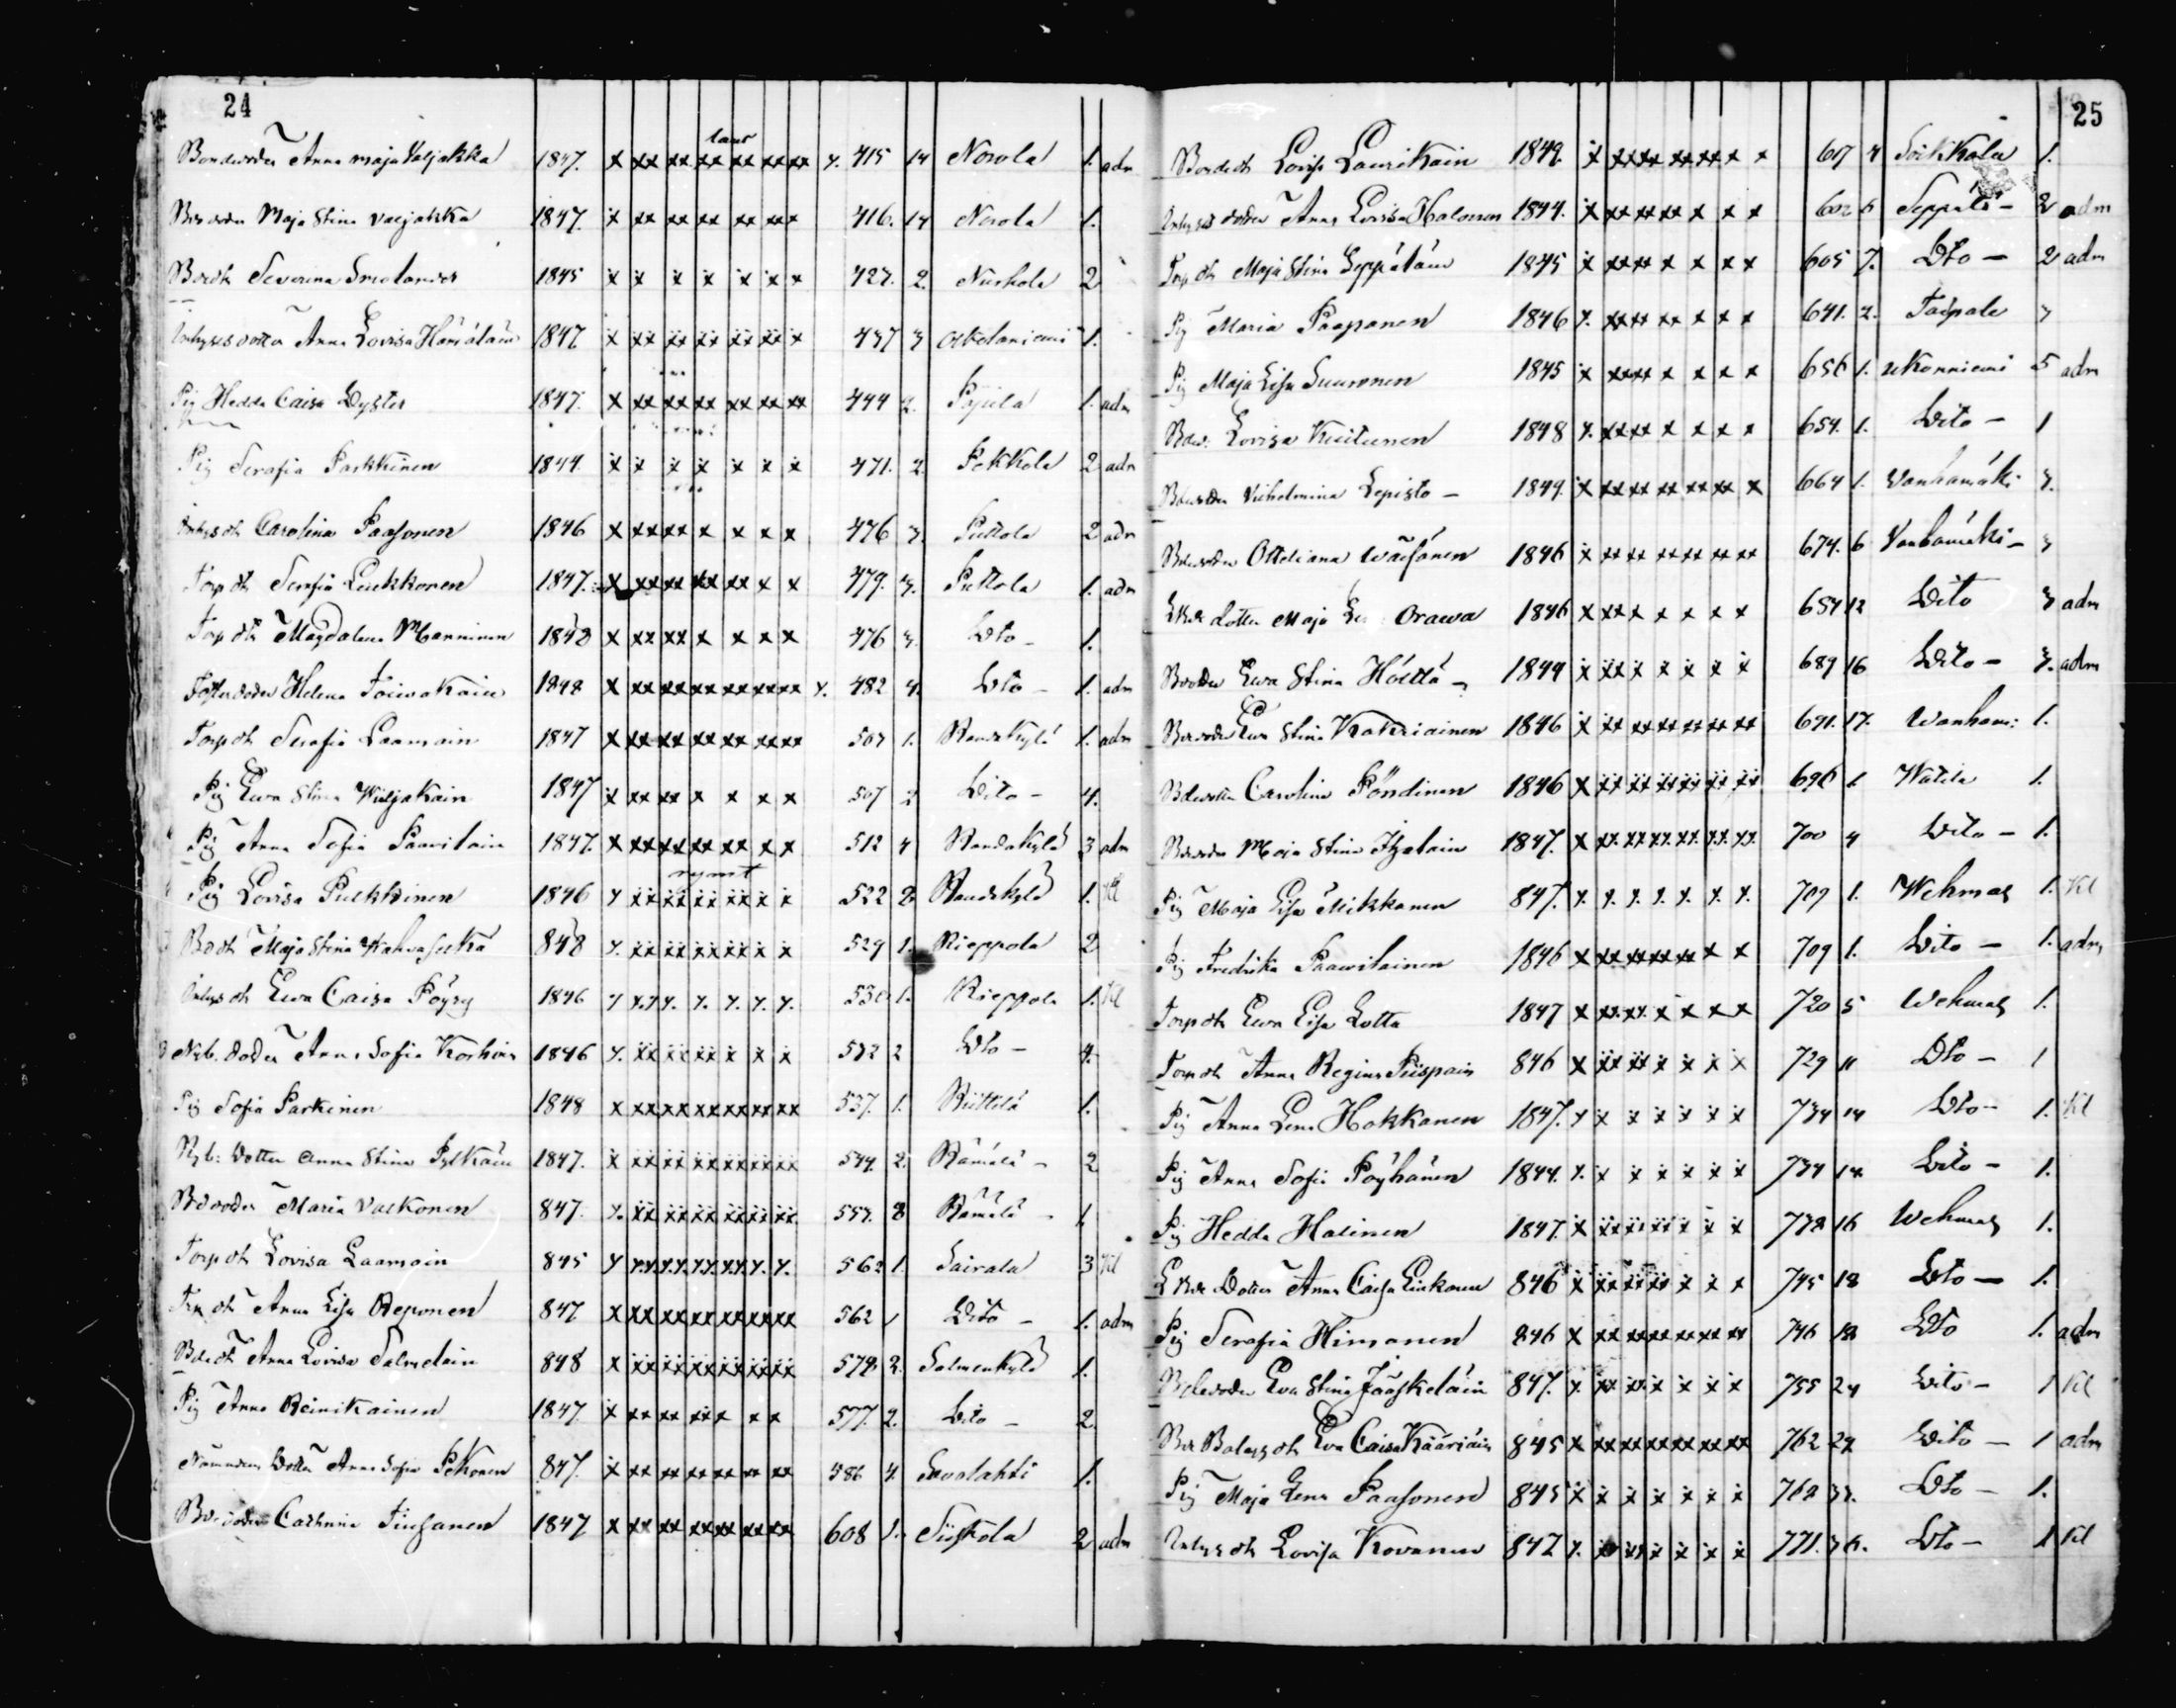 24
Bondedoter Anna Maja Valjakka 1847. x xx xx xx xx xx xx x. 415 14 Norola 1. adm
laus
Bdedoter Maja Stina Valjakka 1847. x xx xx xx xx xx x 416. 14 Norola 1.
Bdedtr Severina Smolander 1845 x x x x x x x 427. 2. Niuhola 2
Inhyses dotter Anna Lovisa Hämäläin 1847 x xx xx xx xx xx x 437 3 1.
Pig Hedda Caisa Dyster 1847. x xx xx xx xx xx xx 444 2. Pojula 1. adm
Pig Serafia Parkkinen 1844. x x x x x x x 471. 2. Pekkola 2 adm
Inhys dtr Carolina Paasonen 1846 x xx xx x x x x 476 3. Puttola 2 adm
Torp dtr Serafia Leukkonen 1847. x xx xx xx xx x x 479. 3. Puttola 1. adm
Torp dtr Magdalena Manninen 1848 x xx xx x x x x 476 3. Dto - 1.
Foster doter Helena Toiwakain 1848 x xx xx xx xx xx xx x. 482 4. Dto - 1. adm
Torp dtr Serafia Laamain 1847 x xx xx xx xx xx xx 507 1. Randakylä 1. adm
Pig Ewa Stina Wiljakain 1847 x xx xx x x x x 507 2 Dito - 4.
Pig Anna Sofia Paavilain 1847. x xx xx xx xx x x 512 4 Randakylä 3 adm
rymt
Pig Lovisa Pulkkinen 1846 x xx xx xx xx x x 522 2 Randakylä 1. Kl
Bdedtr Maja Stina 848 x. xx xx xx xx x x 529 1. Rieppola 2
Inhys dtr Ewa Caisa Pöyry 1846 x x.x x. x. x. x. x. 530 1. Rieppola 1. Kl
Nyb. doter Anna Sofia 1846 x. xx xx xx x x x 532 2 Dto - 4.
Pig Sofia Parkinen 1848 x xx xx xx xx xx xx 537. 1. Riittilä 1.
Nyb: Dotter Anna Stina Pylkäin 1847. x xx xx xx xx xx xx 544. 2. Rämälä - 2
Bdedoter Maria Valkonen 847. x. xx xx xx xx xx xx 557. 8 Rämälä - 1
Torp dtr Lovisa Laamain 845 x x.x x.x x.x x.x x. x. 562 1. Sairala 3 Kl
Torp dtr Anna Lisa Reponen 847 x xx xx xx xx xx xx 562 1 Dito - 1. adm
Bdedtr Anna Lovisa Salmelain 848 x xx xx xx xx xx xx 572. 2. Salmenkylä 1.
Pig Anna Reinikainen 1847. x xx xx xx x x x 577. 2. Dito - 2.
Nämndem Dotter Anna Sofia Pekonen 847. x xx xx xx xx xx xx 586 4. Savolahti 1.
Bdedoter Cathrina Tiusanen 1847 x xx xx xx xx xx xx 608 1. Siiskola 2 adm
25
Bondedtr Lovisa Laurikain 1849. x xx xx xx xx x x 617 4 Soikkola 1.
Inhyses doter Anna Lovisa Halonen 1844. x xx xx xx x x x 602 6 Seppälä - 2 adm
Torp dtr Maja Stina Seppäläin 1845 x xx xx x x x x 605 7. Dto - 2 adm
Pig Maria Paaponen 1846 x. xx xx xx x x x 641. 2. Taipale 3
Pig Maja Lisa Suuronen 1845 x xx xx x x x x 656 1. Ukonniemi 5 adm
Bdew. Lovisa Kuitunen 1848 x. xx xx x x x x 654. 1. Dito - 1
Bdedoter Vilhelmina Lepisto - 1849. x xx xx xx xx xx x 664 1. Vanhamäki 3.
Bdedoter Otteliana Wäisänen 1846 x xx xx xx xx xx xx 674. 6 Vanhamäki - 3
Maja Orawa 1846 x xx x x x x x 654 12 Dito 3 adm
Bdedoter Ewa Stina Hölttä - 1844 x xx x x x x x 689 16 Dito - 3. adm
Bdedoter Ewa Stina Kateriainen 1846 x xx xx xx xx xx xx 691. 17. Wanham: 1.
Bdedoter Carolina Pöndinen 1846 x xx xx xx xx xx xx 696 1 Watila 1.
Bdedoter Maja Stina 1847. x xx. xx xx. xx. xx. xx. 700 4 Dito - 1.
Pig Maja Lisa Mikkanen 847. x. x. x. x. x. x. x. 707 1. Wehmas 1. Kl
Pig Fredrika Paawilainen 1846 x xx xx xx xx x x 709 1. Dito - 1. adm
Torp dtr Ewa Lisa Lotta 1847 x xx xx. x x x x 720 5 Wehmas 1.
Torp dtr Anna Regina Piispain 846 x xx xx x x x x 729 11 Dto - 1
Pig Anna Lena Hokkanen 1847. x x x x x x x 734 14 Dto - 1. Kl
Pig Anna Sofia Pöyhänen 1844. x. x x x x x x 734 14 Dito - 1.
Pig Hedda Halinen 1847. x xx xx xx x x x 738 16 Wehmas 1.
Doter Anna Caisa 846 x xx xx xx x x x 745 18 Dto - 1.
Pig Serafia Himanen 846 x xx xx xx xx xx xx 746 18 Dto 1. adm
Bdedoter Eva Stina Jääskeläin 847. x. xx xx. x x x x 755 24 Dito - 1 Kl
Eva Caisa Kääriäin 845 x xx xx xx xx xx xx 762 29 Dito - 1 adm
Pig Maja Lena Paasonen 845 x x x x x x x 768 33. Dto - 1.
Inhys dtr Lovisa Kovanen 847 x. x xx x x x x 771. 36. Dto - 1 Kl